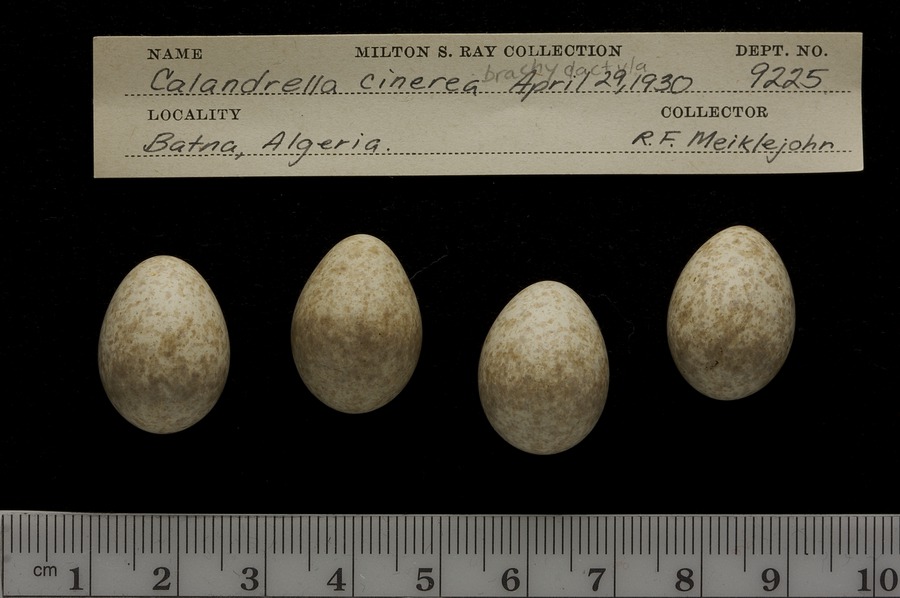 NAME MILTON S. RAY COLLECTION DEPT. NO.
brachydactyla
Calandrella cinerea April 29, 1930 9225
LOCALITY COLLECTOR
Batna, Algeria. R.F. Meiklejohn
cm 1 2 3 4 5 6 7 8 9 10